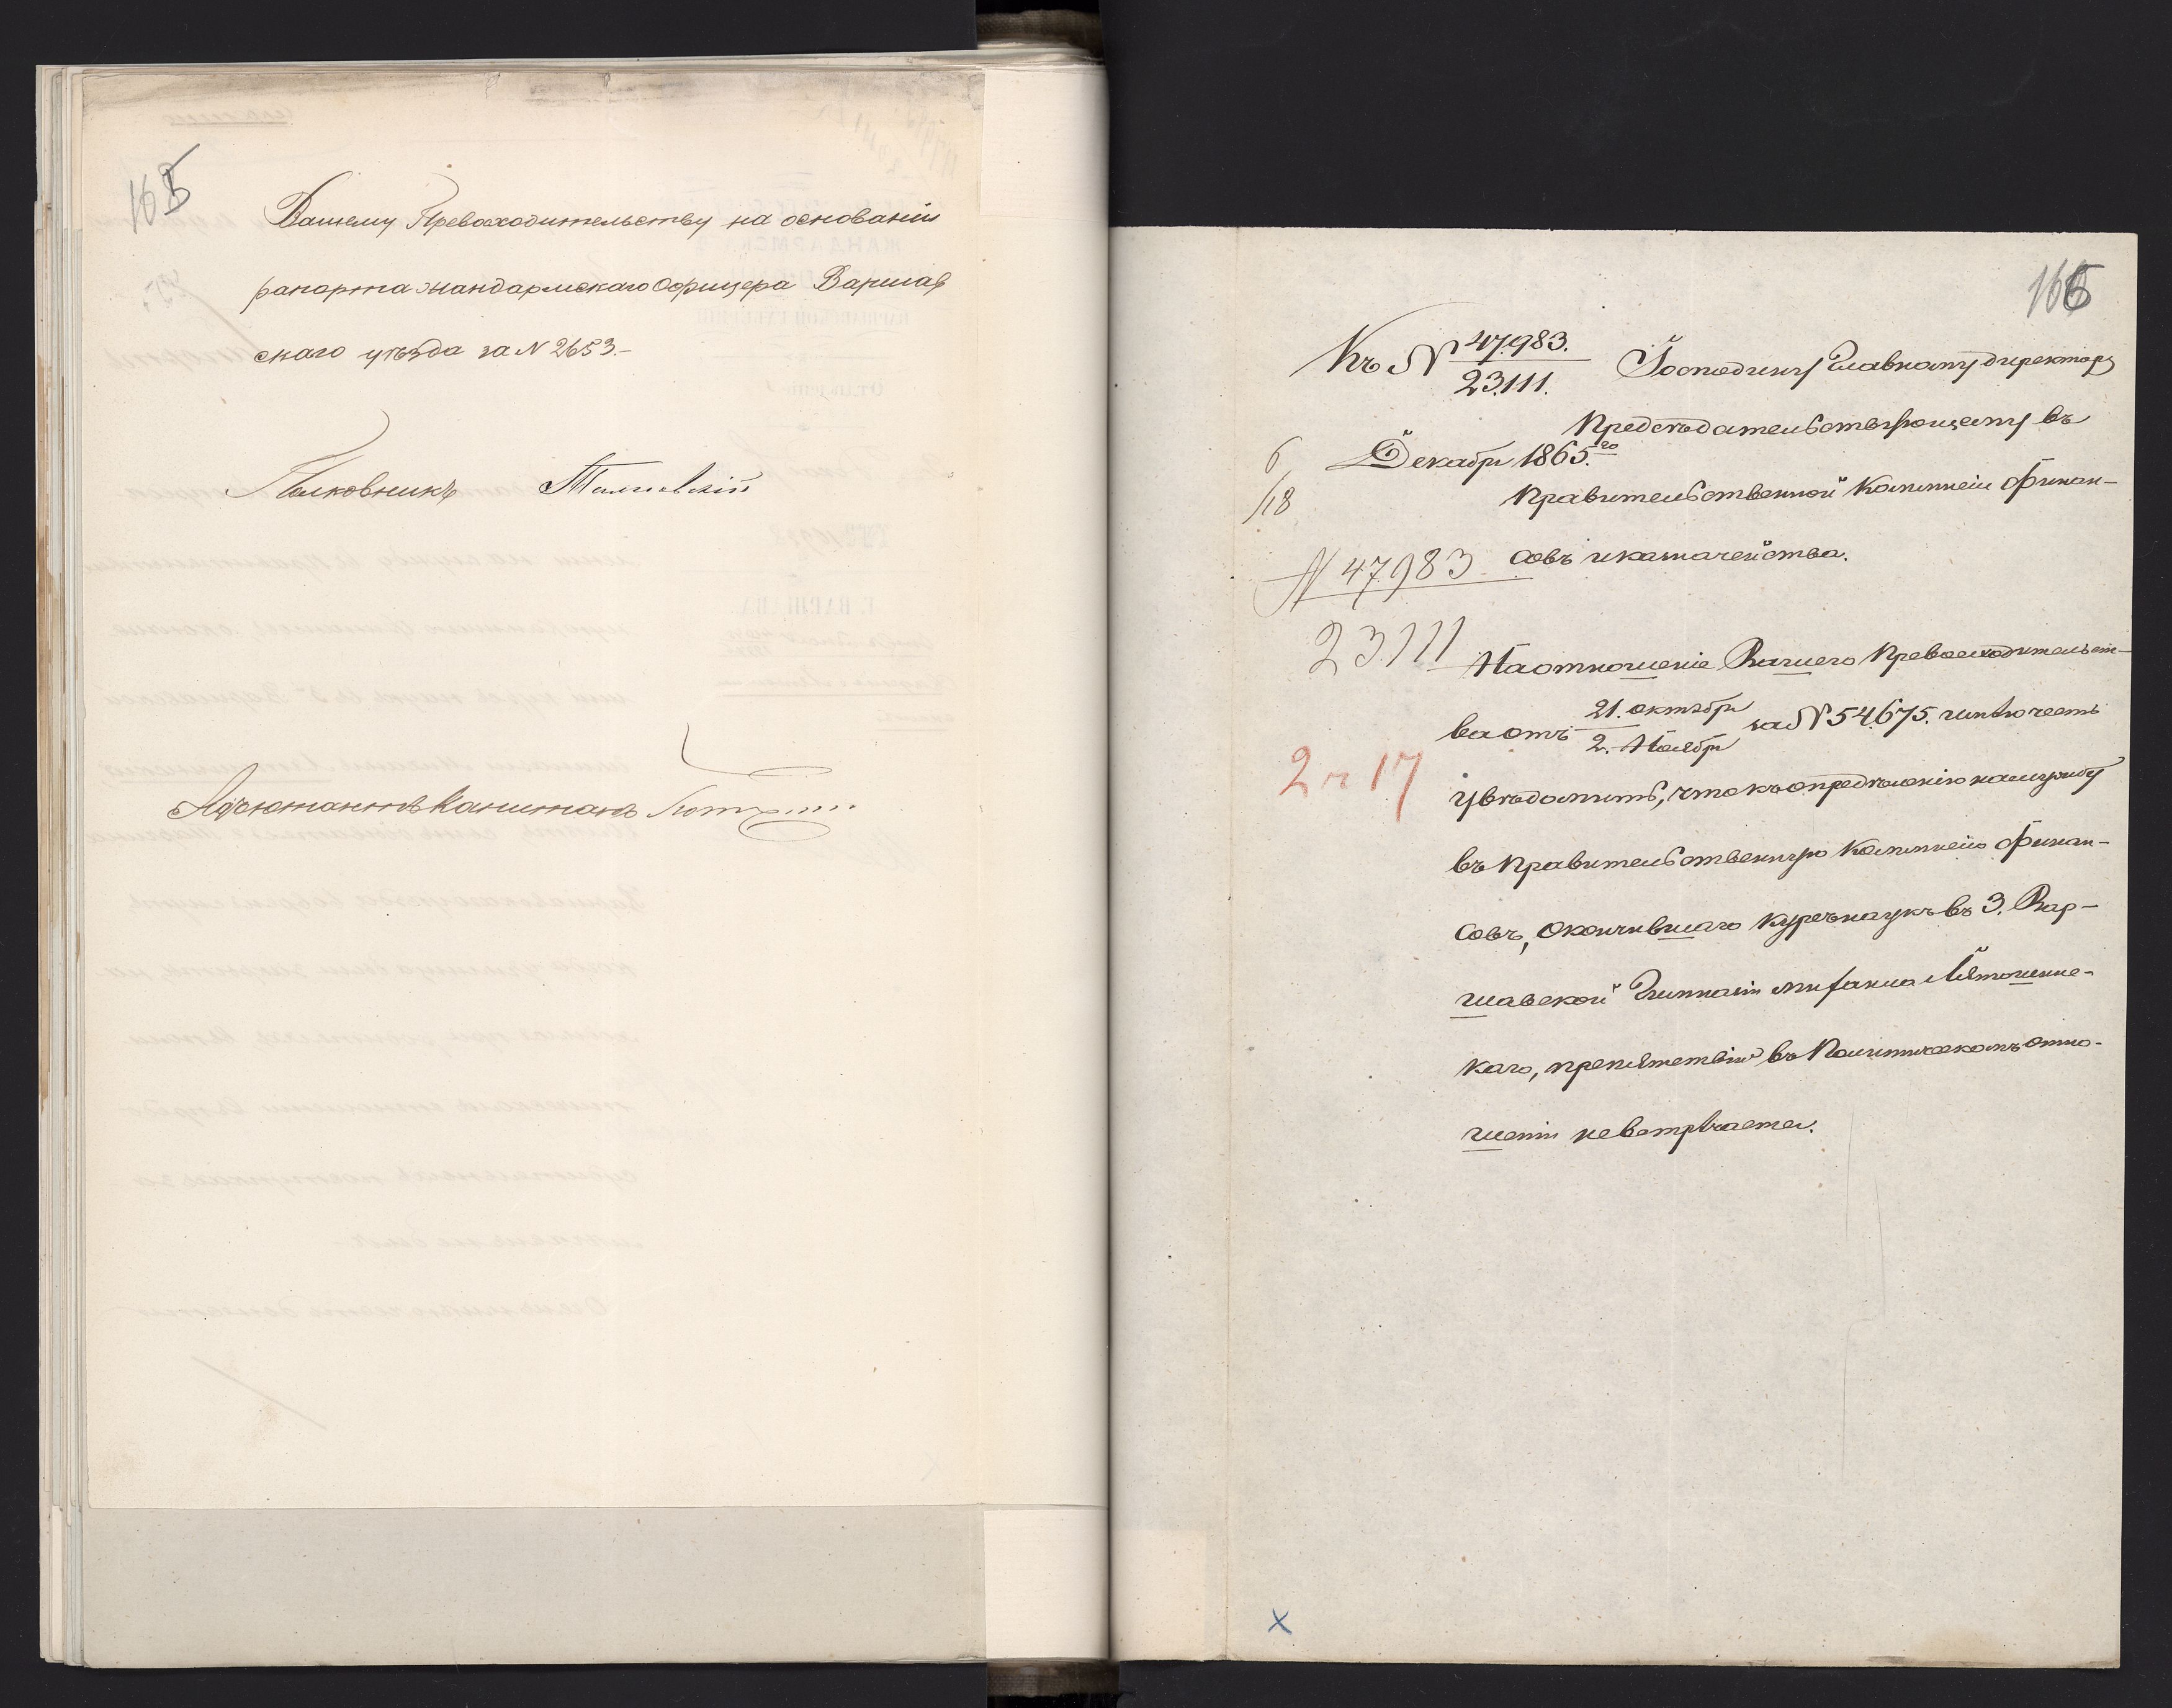 165
Вашему Превосходительству на основаніи
рапорта жандармскаго Офицера Варшав
скаго уѣзда за N 2653.-
Полковникъ
Адъютантъ Капитанъ
166
Къ № 47983. / 23111.
Господину Главному директору
Предсѣдательствующему въ
6/18 Декабря 1865.го
Правительственной Коммисіи Финан-
совъ и казначейства.
N 47983
23111
На отношеніе Вашего Превосходительст-
ва отъ 21. октября / 2. Ноября за № 54675. имѣю честь
2 ч 17
увѣдомить, что къ опредѣленію на службу
въ Правительственную Коммисію Финан-
совъ, окончившаго Курсъ наукъ въ 3. Вар-
шавской Гимназіи Михаила Лятошинс-
каго, препятствія въ Политическомъ отно-
шеніи не встрѣчается.
x